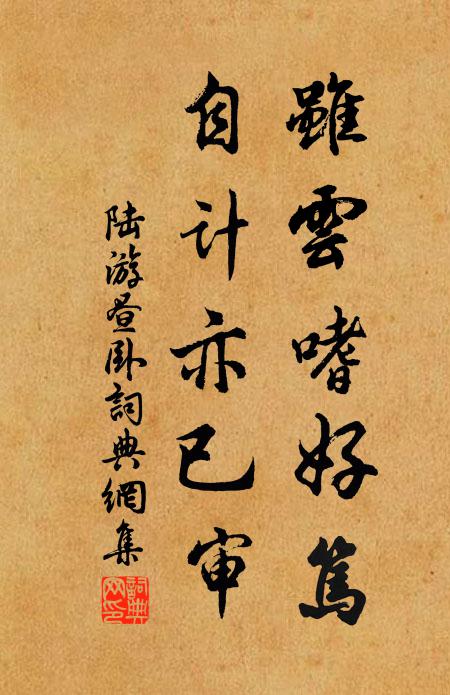 雖雲嗜好篤
自计亦已审
陆游昼卧詞典網集
詞典网印